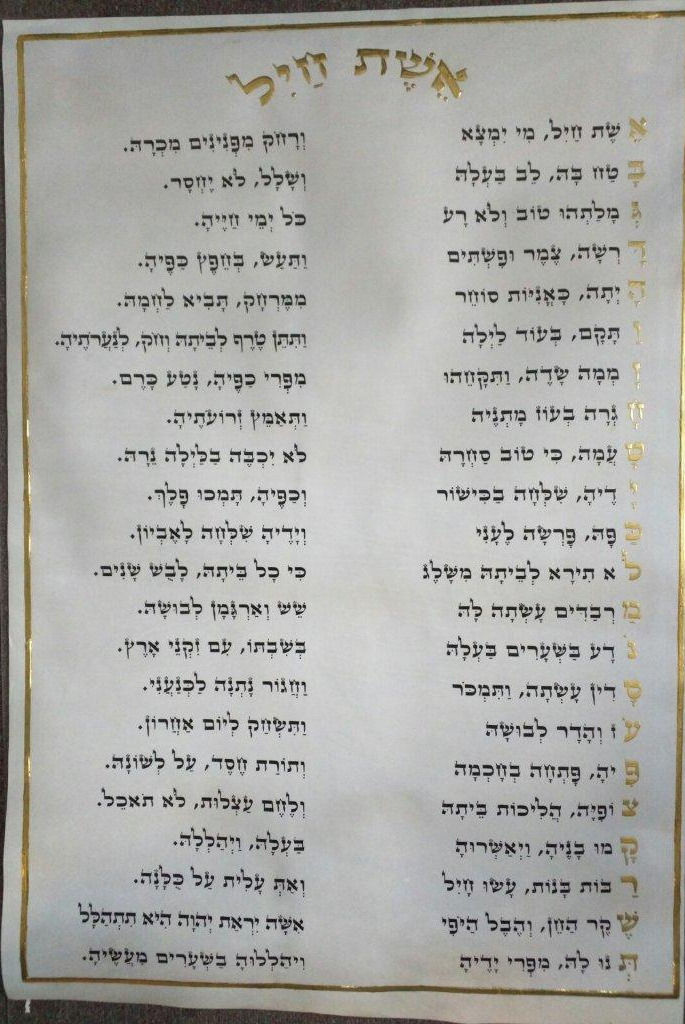 אֵשֶׁת חַיִל
אֵשֶׁת חַיִל, מִי יִמְצָא וְרָחֹק מִפְּנִינִים מִכְרָהּ.
בָּטַח בָּהּ, לֵב בַּעְלָהּ וְשָׁלָל, לֹא יֶחְסָר.
גְּמָלַתְהוּ טוֹב וְלֹא רָע כֹּל יְמֵי חַיֶּיהָ.
דָּרְשָׁה, צֶמֶר וּפִשְׁתִּים וַתַּעַשׂ, בְּחֵפֶץ כַּפֶּיהָ.
הָיְתָה, כָּאֳנִיּוֹת סוֹחֵר מִמֶּרְחָק, תָּבִיא לַחְמָהּ.
וַתָּקָם, בְּעוֹד לַיְלָה וַתִּתֵּן טֶרֶף לְבֵיתָהּ וְחֹק, לְנַעֲרֹתֶיהָ.
זָמְמָה שָׂדֶה, וַתִּקָּחֵהוּ מִפְּרִי כַפֶּיהָ, נָטְעָ כָּרֶם.
חָגְרָה בְעוֹז מָתְנֶיהָ וַתְּאַמֵּץ זְרוֹעֹתֶיהָ.
טָעֲמָה, כִּי טוֹב סַחְרָהּ לֹא יִכְבֶּה בַּלַּיְלָה נֵרָהּ.
יָדֶיהָ, שִׁלְּחָה בַכִּישׁוֹר וְכַפֶּיהָ, תָּמְכוּ פָלֶךְ.
כַּפָּהּ, פָּרְשָׂה לֶעָנִי וְיָדֶיהָ שִׁלְּחָה לָאֶבְיוֹן.
לֹא תִירָא לְבֵיתָהּ מִשָּׁלֶג כִּי כָל בֵּיתָהּ, לָבֻשׁ שָׁנִים.
מַרְבַדִּים עָשְׂתָה לָּהּ שֵׁשׁ וְאַרְגָּמָן לְבוּשָׁהּ.
נוֹדָע בַּשְּׁעָרִים בַּעְלָהּ בְּשִׁבְתּוֹ, עִם זִקְנֵי אָרֶץ.
סָדִין עָשְׂתָה, וַתִּמְכֹּר וַחֲגוֹר נָתְנָה לַכְּנַעֲנִי.
עֹז וְהָדָר לְבוּשָׁהּ וַתִּשְׂחַק לְיוֹם אַחֲרוֹן.
פִּיהָ, פָּתְחָה בְחָכְמָה וְתוֹרַת חֶסֶד, עַל לְשׁוֹנָהּ.
צוֹפִיָּה, הֲלִיכוֹת בֵּיתָהּ וְלֶחֶם עַצְלוּת, לֹא תֹאכֵל.
קָמוּ בָנֶיהָ, וַיְאַשְּׁרוּהָ בַּעְלָהּ, וַיְהַלְלָהּ.
רַבּוֹת בָּנוֹת, עָשׂוּ חָיִל וְאַתְּ עָלִית עַל כֻּלָּנָה.
שֶׁקֶר הַחֵן, וְהֶבֶל הַיֹּפִי אִשָּׁה יִרְאַת יְהוָה הִיא תִתְהַלָּל
תְּנוּ לָהּ, מִפְּרִי יָדֶיהָ וִיהַלְלוּהָ בַשְּׁעָרִים מַעֲשֶׂיהָ.